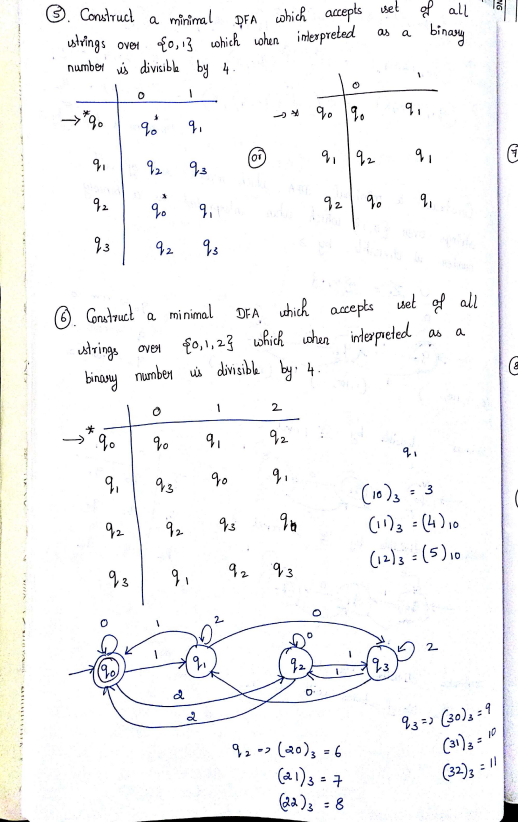 ⑤. Construct a minimal DFA which accepts set of all
strings over {0,1} which when interpreted as a binary
number is divisible by 4.
0 1
→*q0 q0* q1
q1 q2 q3
q2 q0* q1
q3 q2 q3
(or)
0 1
→* q0 q0 q1
q1 q2 q1
q2 q0 q1
⑥. Construct a minimal DFA which accepts set of all
strings over {0,1,2} which when interpreted as a
binary number is divisible by 4.
0 1 2
→*q0 q0 q1 q2
q1 q3 q0 q1
q2 q2 q3 q0
q3 q1 q2 q3
q1
(10)3 = 3
(11)3 = (4)10
(12)3 = (5)10
0 1 2 0
q0 1 q1 q2 0 1 q3 2
1
2 0
2
q2 => (20)3 = 6
(21)3 = 7
(22)3 = 8
q3 => (30)3 = 9
(31)3 = 10
(32)3 = 11